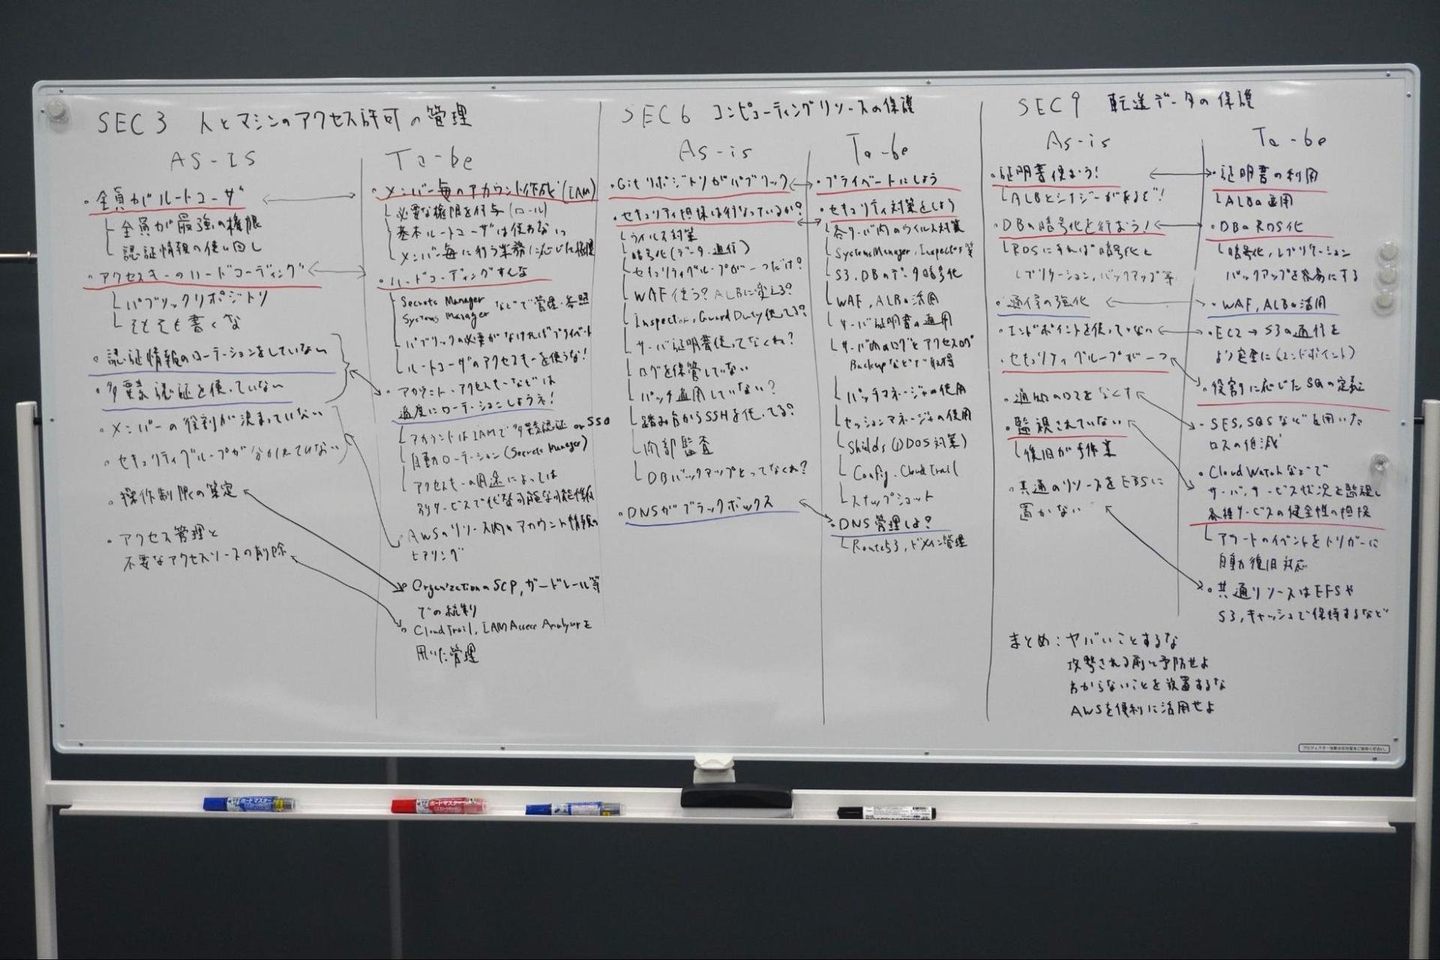 SEC3 人とマシンのアクセス許可の管理
AS-IS
・全員がルートユーザ
全員が最強の権限
認証情報の使い回し
・アクセスキーのハードコーディング
パブリックリポジトリ
そもそも書くな
・認証情報のローテーションをしていない
・多要素認証を使っていない
・メンバーの役割が決まっていない
・セキュリティグループが分かれていない
・操作制限の策定
・アクセス管理と
不要なアクセスリソースの削除
To-be
・メンバー毎のアカウント作成(IAM)
必要な権限を付与(ロール)
基本ルートユーザは使わない
メンバー毎に行う業務に応じた権限
・ハードコーディングすんな
Secrets Manager
Systems Manager などで管理・参照
パブリックの必要がなければプライベート
ルートユーザのアクセスキーを使うな!
・アカウント・アクセスキーなどは
適度にローテーションしようぇ!
アカウントはIAMで多要素認証 or SSO
自動ローテーション(Secrets Manager)
アクセスキーの用途によっては
別サービスで代替可能な可能性有
・AWSのリソース内のアカウント情報の
ヒアリング
・OrganizationのSCP, ガードレール等
での統制
・CloudTrail, IAM Access Analyzerを
用いた管理
SEC6 コンピューティングリソースの保護
As-is
・Gitリポジトリがパブリック
・セキュリティ担保は行なっているか?
ウイルス対策
暗号化(データ, 通信)
セキュリティグループが一つだけ?
WAF使う? ALBに変える?
Inspector, Guard Duty使ってる?
サーバ証明書使ってなくね?
ログを保管していない
パッチ適用していない?
踏み台からSSHを使ってる?
内部監査
DBバックアップとってなくね?
・DNSがブラックボックス
To-be
・プライベートにしよう
・セキュリティ対策をしよう
各サーバ内のウイルス対策
SystemsManager, Inspector等
S3, DBのデータ暗号化
WAF, ALBの活用
サーバ証明書の適用
サーバ内のログとアクセスログ
Backupなどで取得
パッチマネージャの使用
セッションマネージャの使用
Shield(DDOS対策)
Config, Cloud Trail
スナップショット
・DNS管理しよ?
Route53, ドメイン管理
SEC9 転送データの保護
As-is
・証明書使おう!
ALBとシナジーがあるぞ!
・DBの暗号化を行おう!
RDSにすれば暗号化と
レプリケーション, バックアップ等
・通信の強化
・エンドポイントを使っていない
・セキュリティグループが一つ
・通知のロスをなくす
・監視されていない
復旧が手作業
・共通のリソースをEBSに
置かない
To-be
・証明書の利用
ALBの適用
・DBのRDS化
暗号化, レプリケーション
バックアップを容易にする
・WAF, ALBの活用
・EC2→S3の通信を
より安全に(エンドポイント)
・役割に応じたSGの定義
・SES, SQSなどを用いた
ロスの低減
・CloudWatchなどで
サーバ, サービス状況を監視し
各種サービスの健全性の担保
アラートのイベントをトリガーに
自動復旧対応
・共通リソースはEFSや
S3, キャッシュで保持するなど
まとめ:ヤバいことするな
攻撃される前に予防せよ
わからないことを放置するな
AWSを便利に活用せよ